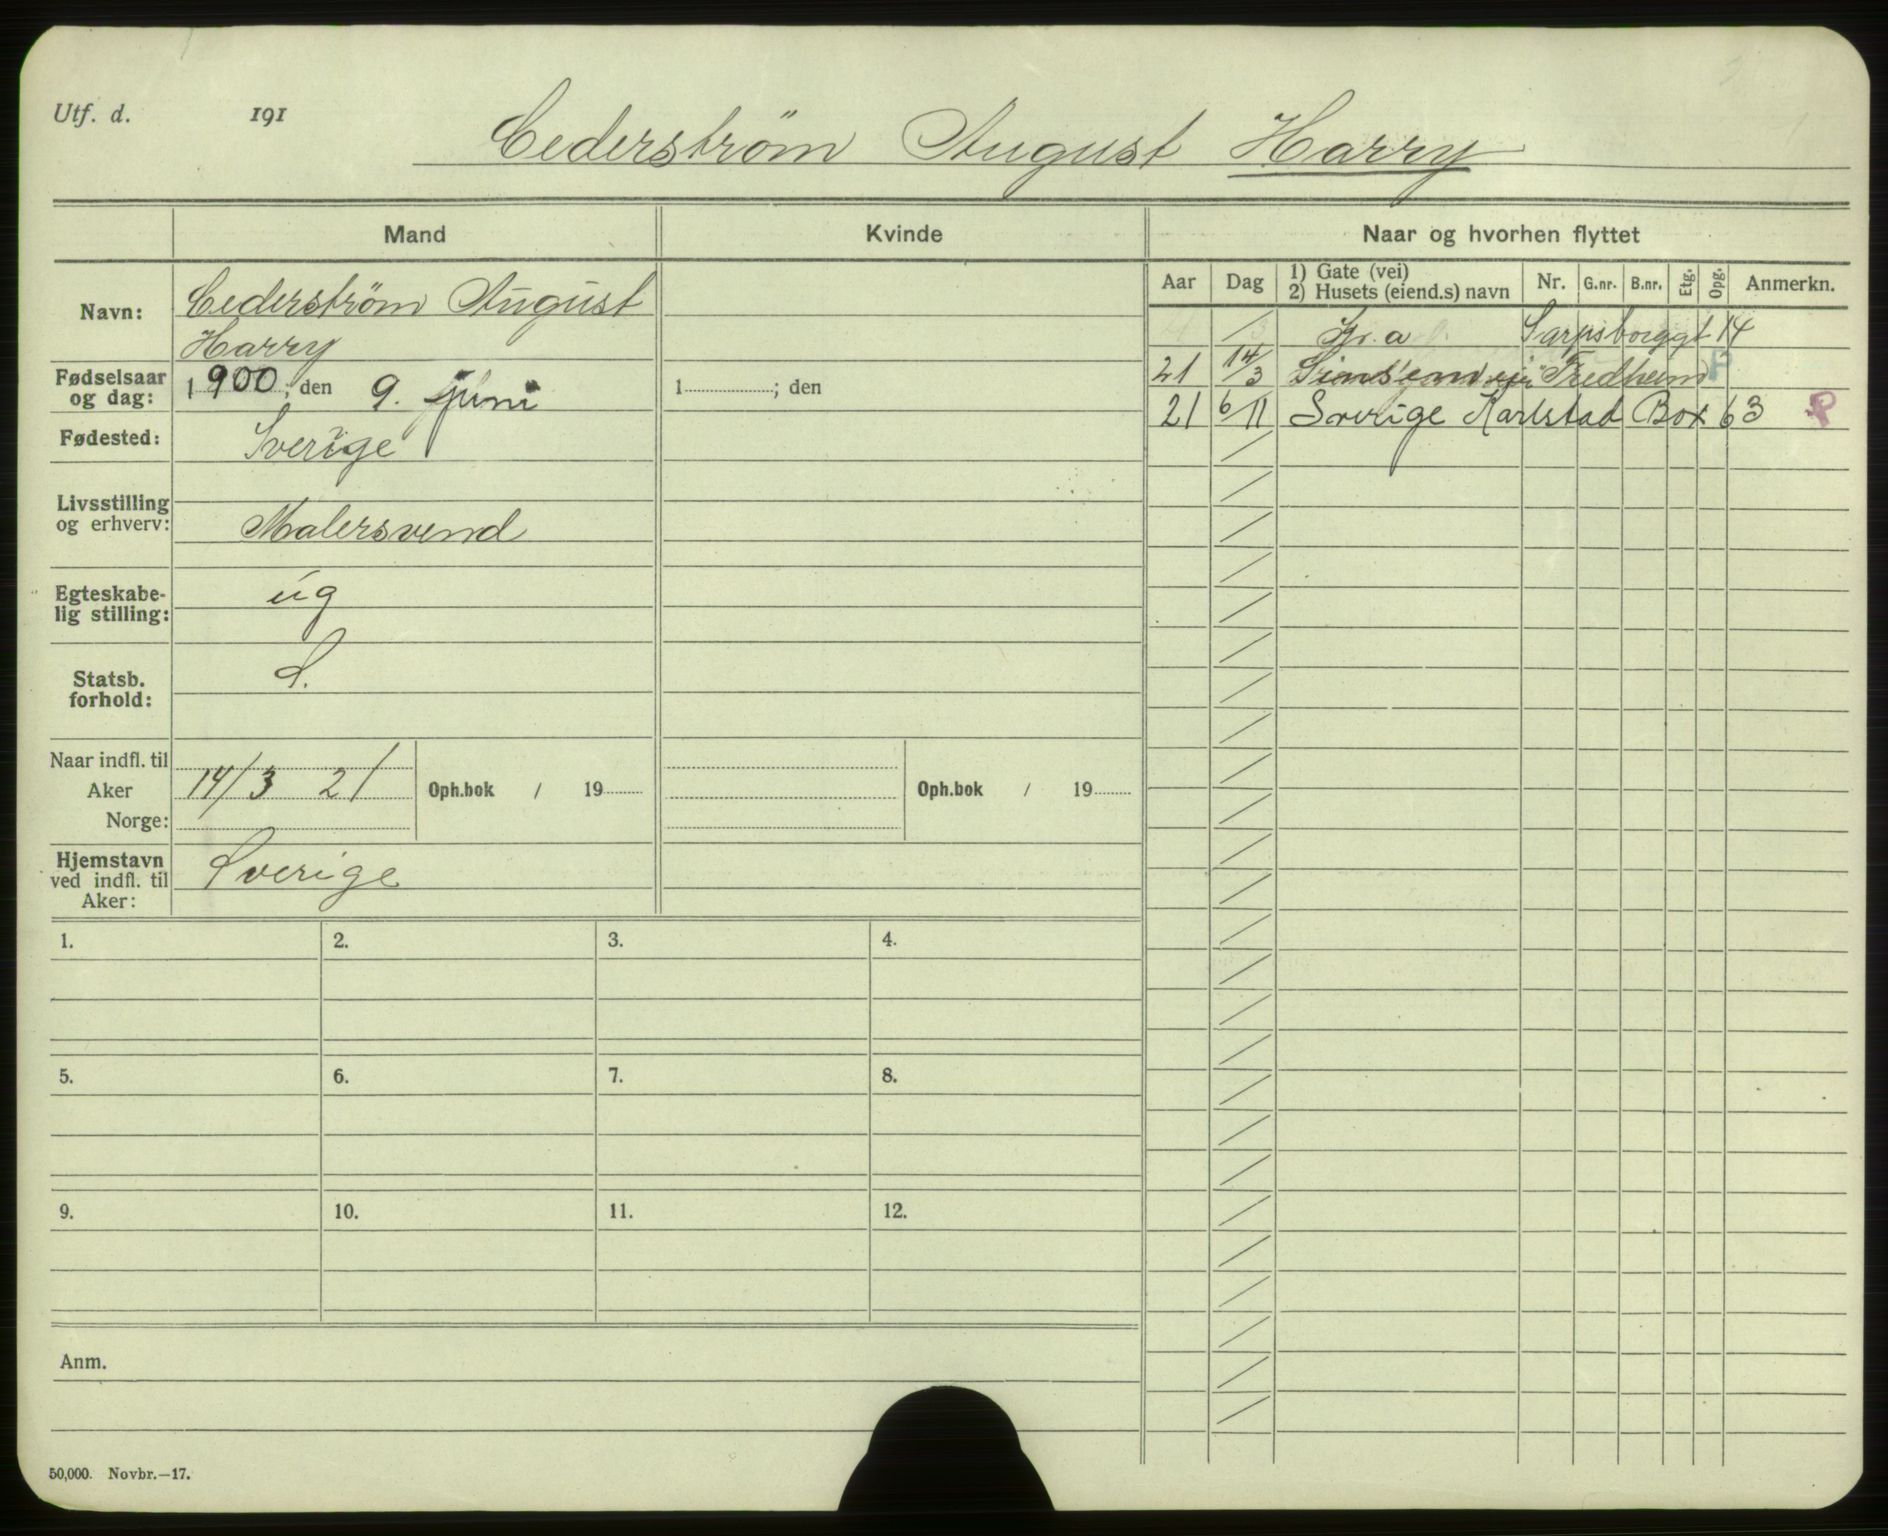 Utf. d. 191
Cederstrøm August Harry
Mand Kvinde Naar og hvorhen flyttet
Navn: Cederstrøm August
Harry
Fødselsaar og dag: 1900; den 9. juni
1 ; den
Fødested: Sverige
Livsstilling og erhverv: Malersvend
Egteskabe-
lig stilling: ug
Statsb.
forhold: S.
Naar indfl. til
Aker 14/3 21 Oph.bok / 19 Oph.bok / 19
Norge:
Hjemstavn
ved indfl. til
Aker: Sverige
Aar Dag 1) Gate (vei)
2) Husets (eiend.s) navn Nr. G.nr. B.nr. Etg. Opg. Anmerkn.
Kr. a Sarpsborggt 14
21 14/3 Fredheim P
21 6/11 Sverige Karlstad Box 63 P
1. 2. 3. 4.
5. 6. 7. 8.
9. 10. 11. 12.
Anm.
50,000. Novbr.—17.